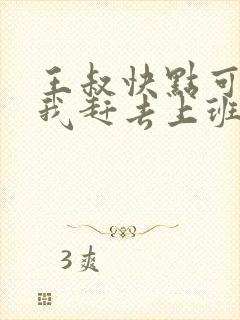 王叔快點可
我赶去上班
3爽